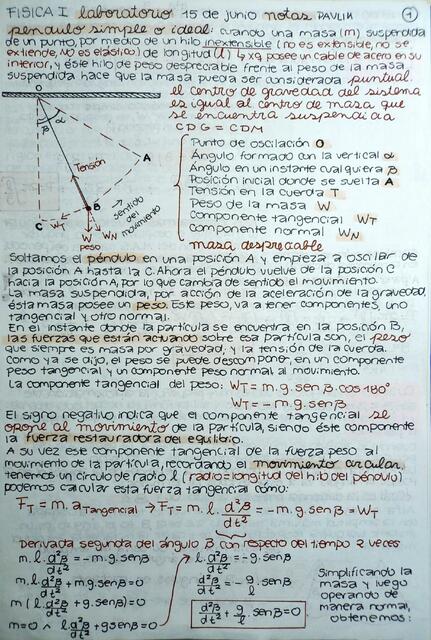 FISICA I laboratorio 15 de junio notas PAULIN 1
péndulo simple o ideal: cuando una masa (m) suspendida
de un punto, por medio de un hilo inextensible (no es extensible, no se
extiende, no es elástica) de longitud (l) ↳ xq posee un cable de acero en su
interior, y éste hilo de peso despreciable frente al peso de la masa
suspendida hace que la masa pueda ser considerada puntual.
el centro de gravedad del sistema
es igual al centro de masa que
se encuentra suspendida
CDG = CDM
O
α
β
A
Tensión
B
C
WT
W
peso
WN
sentido
del
movimiento
Punto de oscilación O
Ángulo formado con la vertical α
Ángulo en un instante cualquiera β
Posición inicial donde se suelta A
Tensión en la cuerda T
Peso de la masa W
Componente tangencial WT
Componente normal WN
masa despreciable
Soltamos el péndulo en una posición A y empieza a oscilar de
la posición A hasta la C. Ahora el péndulo vuelve de la posición C
hacia la posición A, por lo que cambia de sentido el movimiento.
La masa suspendida, por acción de la aceleración de la gravedad,
ésta masa posee un peso. Este peso, va a tener componentes, uno
tangencial y otro normal.
En el instante donde la partícula se encuentra en la posición B,
las fuerzas que están actuando sobre esa partícula son, el peso
que siempre es masa por gravedad, y la tensión de la cuerda.
Como ya se dijo, el peso se puede descomponer, en un componente
peso tangencial y un componente peso normal al movimiento.
La componente tangencial del peso: WT = m.g.sen β.cos 180°
WT = -m.g.sen β
El signo negativo indica que el componente tangencial se
opone al movimiento de la partícula, siendo éste componente
la fuerza restauradora del equilibrio.
A su vez este componente tangencial de la fuerza peso al
movimiento de la partícula, recordando el movimiento circular,
tenemos un círculo de radio l (radio = longitud del hilo del péndulo)
podemos calcular esta fuerza tangencial cómo:
FT = m. a Tangencial → FT = m. l. d²β/dt² = -m.g.senβ = WT
Derivada segunda del ángulo β con respecto del tiempo 2 veces
m. l. d²β/dt² = -m.g.senβ
m.l. d²β/dt² + m.g.senβ = 0
m ( l d²β/dt² + g.senβ) = 0
m=0 ∧ l.d²β/dt² + g senβ = 0
l. d²β/dt² = -g.senβ
d²β/dt² = -g/l . senβ
d²β/dt² + g/l . senβ = 0
Simplificando la
masa y luego
operando de
manera normal,
obtenemos: